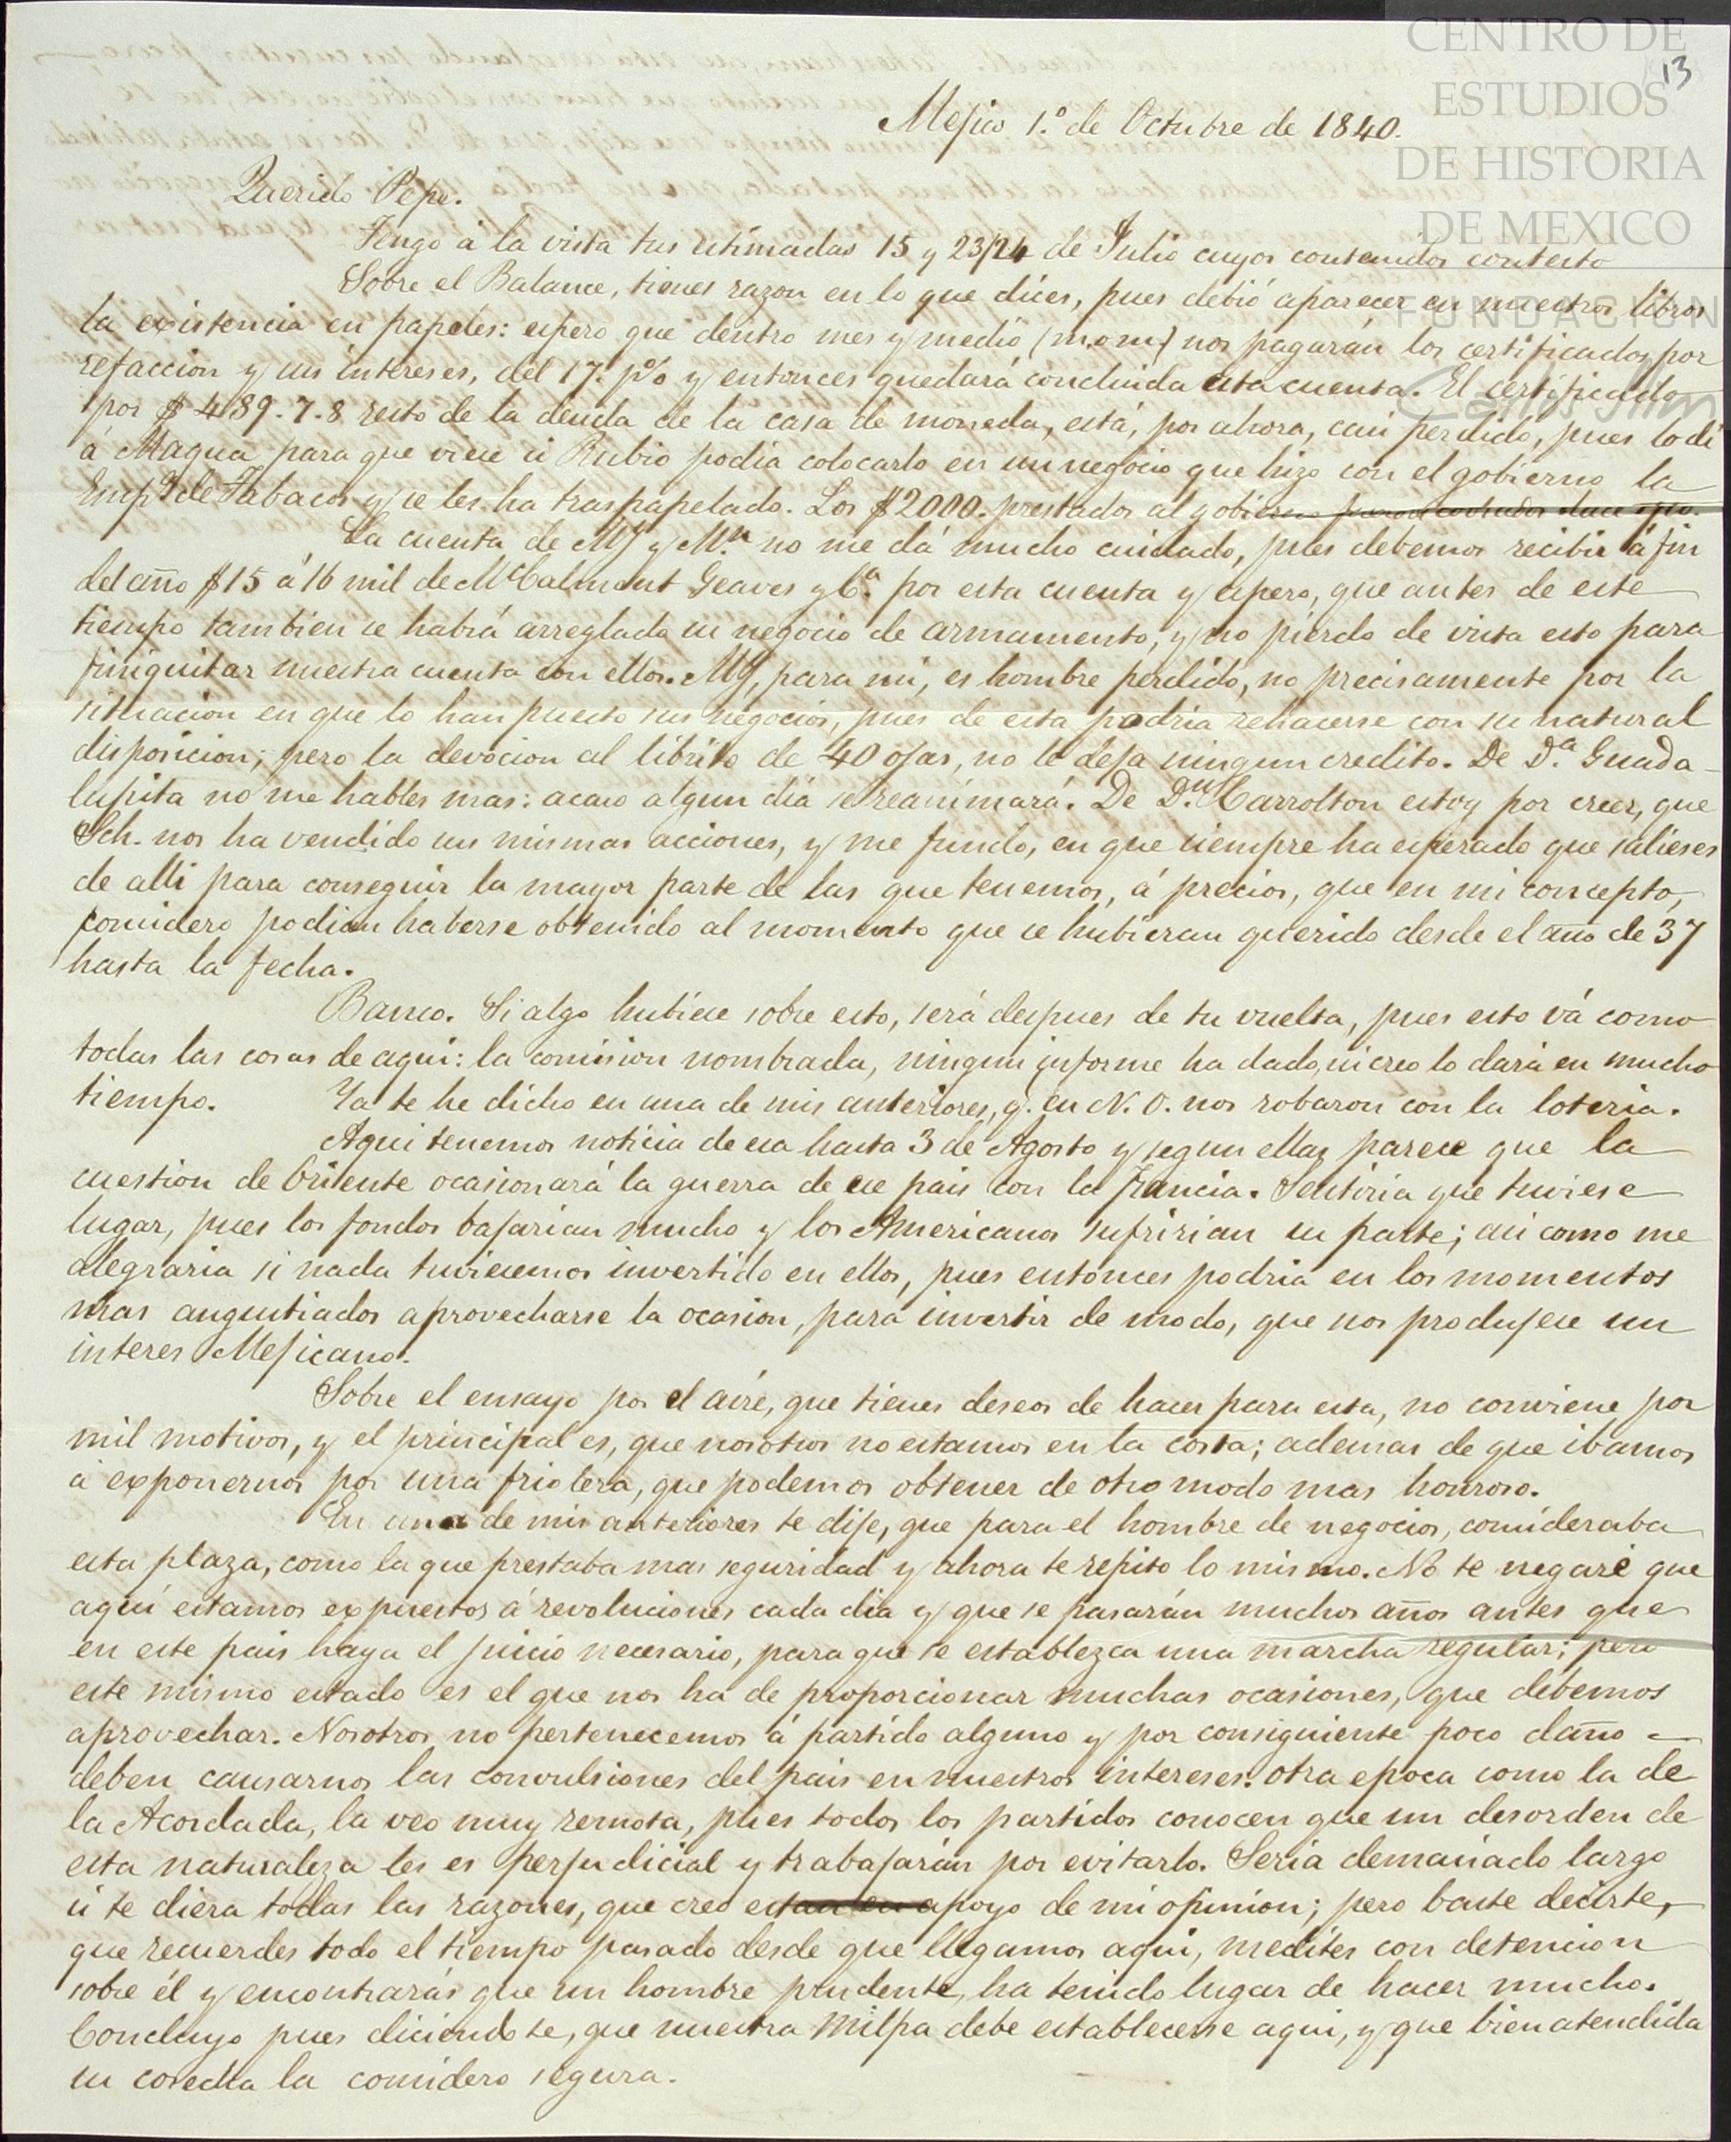 CENTRO DE
ESTUDIOS
DE HISTORIA
DE MEXICO
FUNDACION
13
Mejico 1.º de Octubre de 1840.
Querido Pepe.
Tengo á la vista tus estimadas 15 y 23/24 de Julio cuyos contenidos contesto
Sobre el Balance, tienes razon en lo que dices, pues debió aparecer en nuestros libros
la existencia en papeles: espero que dentro mes y medio (m.o m) nos pagarán los certificados por
refaccion y sus intereses, del 17. p% y entonces quedará concluida esta cuenta. El certificado
por $ 489.7.8 resto de la deuda de la casa de moneda, está, por ahora, casi perdido, pues lo dí
á Magua para que viese si Rubio podia colocarlo en un negocio que hizo con el gobierno la
Emp.ª de Tabacos y se les ha traspapelado. Los $2000. prestados al gobierno fueron cobrados hace
La cuenta de MG y M.n no me dá mucho cuidado, pues debemos recibir á fin
del año $15 á 16 mil de McCalmont Geaves y Cª. por esta cuenta y espero, que antes de este
tiempo tambien se habrá arreglado su negocio de armamento, y no pierdo de vista esto para
finiquitar nuestra cuenta con ellos. MG, para mi, es hombre perdido, no precisamente por la
situacion en que lo han puesto sus negocios, pues de esta podria rehacerse con su natural
disposicion; pero la devocion al librito de 40 ojas, no le deja ningun credito. De D.ª Guada-
lupita no me hables mas: acaso algun dia se reanimará. De D.n Carrolton estoy por creer, que
Sch. nos ha vendido sus mismas acciones, y me fundo, en que siempre ha esperado que salieses
de alli para conseguir la mayor parte de las que tenemos, á precios, que en mi concepto,
considero podian haberse obtenido al momento que se hubieran querido desde el año de 37
hasta la fecha.
Banco. Si algo hubiese sobre esto, será despues de tu vuelta, pues esto vá como
todas las cosas de aqui: la comision nombrada, ningun informe ha dado, ni creo lo dará en mucho
tiempo. Ya te he dicho en una de mis anteriores, q. en N. O. nos robaron con la loteria.
Aqui tenemos noticia de esa hasta 3 de Agosto y segun ellas parece que la
cuestion de Oriente ocasionará la guerra de ese pais con la Francia. Sentiria que tuviese
lugar, pues los fondos bajarian mucho y los Americanos sufririan su parte; asi como me
alegraria si nada tuviesemos invertido en ellos, pues entonces podria en los momentos
mas angustiados aprovecharse la ocasion, para invertir de modo, que nos produjese un
interes Mejicano.
Sobre el ensayo por el aire, que tienes deseos de hacer para esta, no conviene por
mil motivos, y el principal es, que nosotros no estamos en la costa; ademas de que ibamos
á exponernos por una friolera, que podemos obtener de otro modo mas honroso.
En una de mis anteriores te dije, que para el hombre de negocios, consideraba
esta plaza, como la que prestaba mas seguridad y ahora te repito lo mismo. No te negaré que
aquí estamos expuestos á revoluciones cada dia y que se pasarán muchos años antes que
en este pais haya el juicio necesario, para que se establezca una marcha regular; pero
este mismo estado es el que nos ha de proporcionar muchas ocasiones, que debemos
aprovechar. Nosotros no pertenecemos á partido alguno y por consiguiente poco daño
deben causarnos las convulsiones del pais en nuestros intereses: otra epoca como la de
la Acordada, la veo muy remota, pues todos los partidos conocen que un desorden de
esta naturaleza les es perjudicial y trabajarán por evitarlo. Seria demasiado largo
si te diera todas las razones, que creo estan en apoyo de mi opinion; pero baste decirte,
que recuerdes todo el tiempo pasado desde que llegamos aqui, medites con detencion
sobre él y encontrarás que un hombre prudente, ha tenido lugar de hacer mucho.
Concluyo pues diciendote, que nuestra Milpa debe establecerse aqui, y que bien atendida
su cosecha la considero segura.